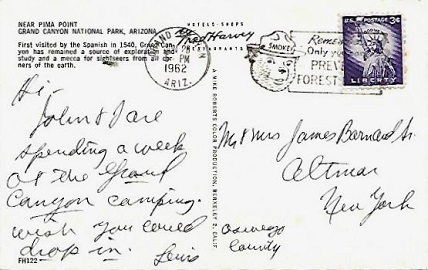 NEAR PIMA POINT
GRAND CANYON NATIONAL PARK, ARIZONA
First visited by the Spanish in 1540, Grand Can-
yon has remained a source of exploration and
study and a mecca for sightseers from all cor-
ners of the earth.
HOTELS-SHOPS
Fred Harvey
RESTAURANTS
GRAND CANYON
PM
1962
ARIZ.
SMOKEY
Remember
Only you
PREVENT
FOREST
U.S. POSTAGE 3¢
LIBERTY
Hi-
John & I are
spending a week
at the Grand
Canyon camping.
wish you could
drop in.
Lewis
FH122
A MIKE ROBERTS COLOR PRODUCTION, BERKELEY 2, CALIF
Mr & Mrs James Barnard Sr.
Altmar
New York
Oswego
County